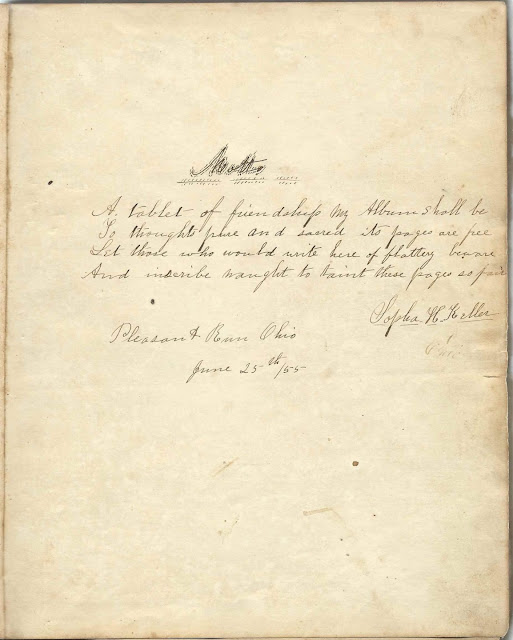 Motto
A tablet of friendship my Album shall be
To thoughts pure and sacred its pages are free
Let those who would write here of flattery beware
And inscribe naught to taint these pages so fair
Sopha H. Keller
Pleasant Run Ohio
June 25th/55